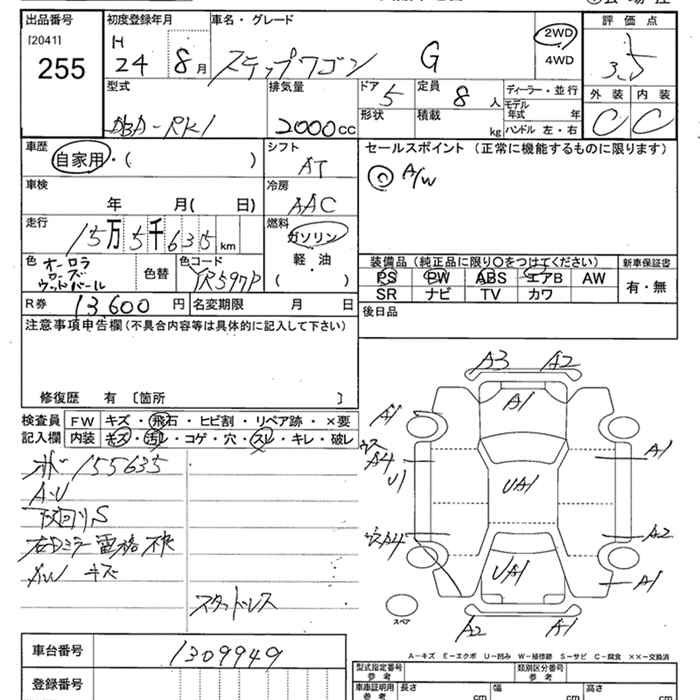 出品番号 初度登録年月 車名・グレード 評価点
[2041] H
255 24 8月 ステップワゴン G 2WD 4WD 3.5
型式 排気量 ドア 5 定員 8人 ディーラー・並行 外装 内装
DBA-RK1 2000cc 形状 積載 kg モデル年式 年 C C
ハンドル 左・右
車歴 自家用・( ) シフト AT セールスポイント (正常に機能するものに限ります)
車検 年 月( 日) 冷房 AAC ◎ A/W
走行 15万5千635km 燃料 ガソリン 軽・油 ( )
色 オーロラ 色替 色コード 装備品 (純正品に限り〇をつけてください) 新車保証書
YR597P PS PW ABS エアB AW 有・無
SR ナビ TV カワ
R券 13,600円 名変期限 月 日 後日品
注意事項申告欄 (不具合内容等は具体的に記入して下さい)
修復歴 有 〔箇所 〕
検査員 FW キズ・飛石・ヒビ割・リペア跡・×要
記入欄 内装 キズ・汚れ・コゲ・穴・スレ・キレ・破レ
155635
下回りS
右Dミラー
AW キズ
スタッドレス
A3 A2
A1
A1
A1
A4
U1
UA1
A4 A2
UA1
A1
スペア
A2 A1
A-キズ E-エクボ U-凹み W-補修跡 S-サビ C-腐食 ××-交換済
車台番号 1309949
登録番号
型式指定番号 参考 類別区分番号 参考
車庫証明用 参考 長さ cm 幅 cm 高さ cm